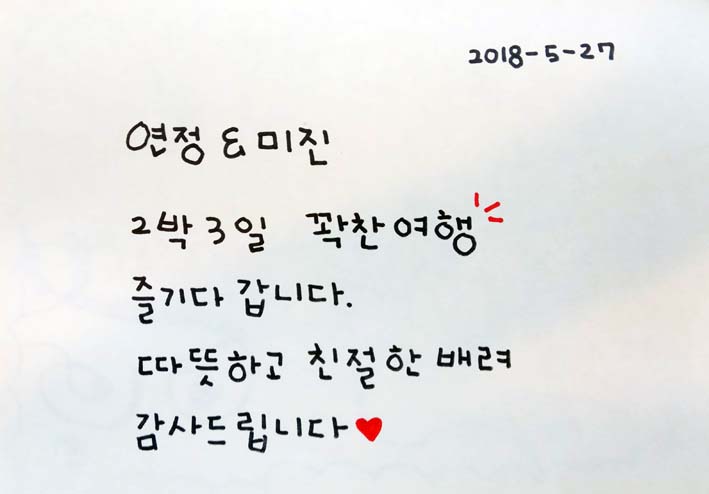 2018-5-27
연정 & 미진
2박 3일 꽉찬 여행
즐기다 갑니다.
따뜻하고 친절한 배려
감사드립니다♥